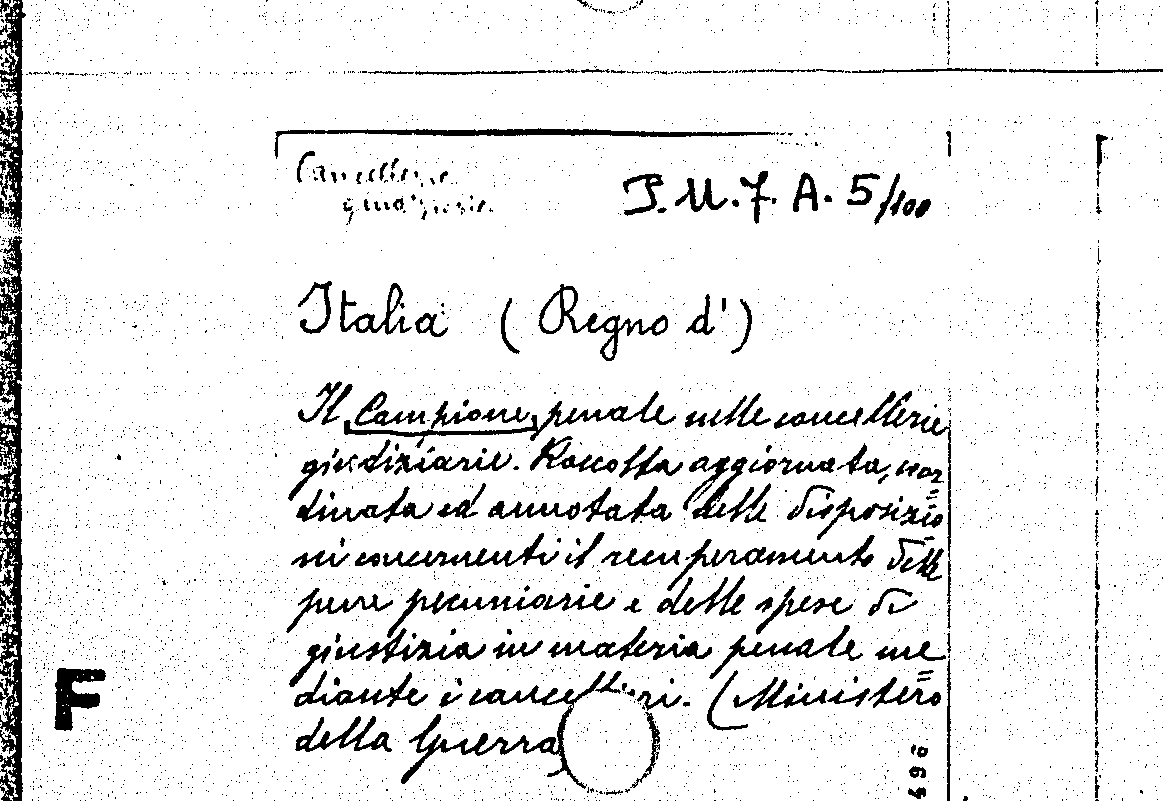 Cancellerie
giudiziarie.
P.U.7. A. 5/100
Italia ( Regno d')
Il Campione, penale nelle cancellerie
giudiziarie. Raccolta aggiornata, coor=
dinata ed annotata delle disposizio
ni concernenti il recuperamento delle
pene pecuniarie e delle spese di
giustizia in materia penale me=
diante i cancellieri. (Ministero
della Guerra)
F
496